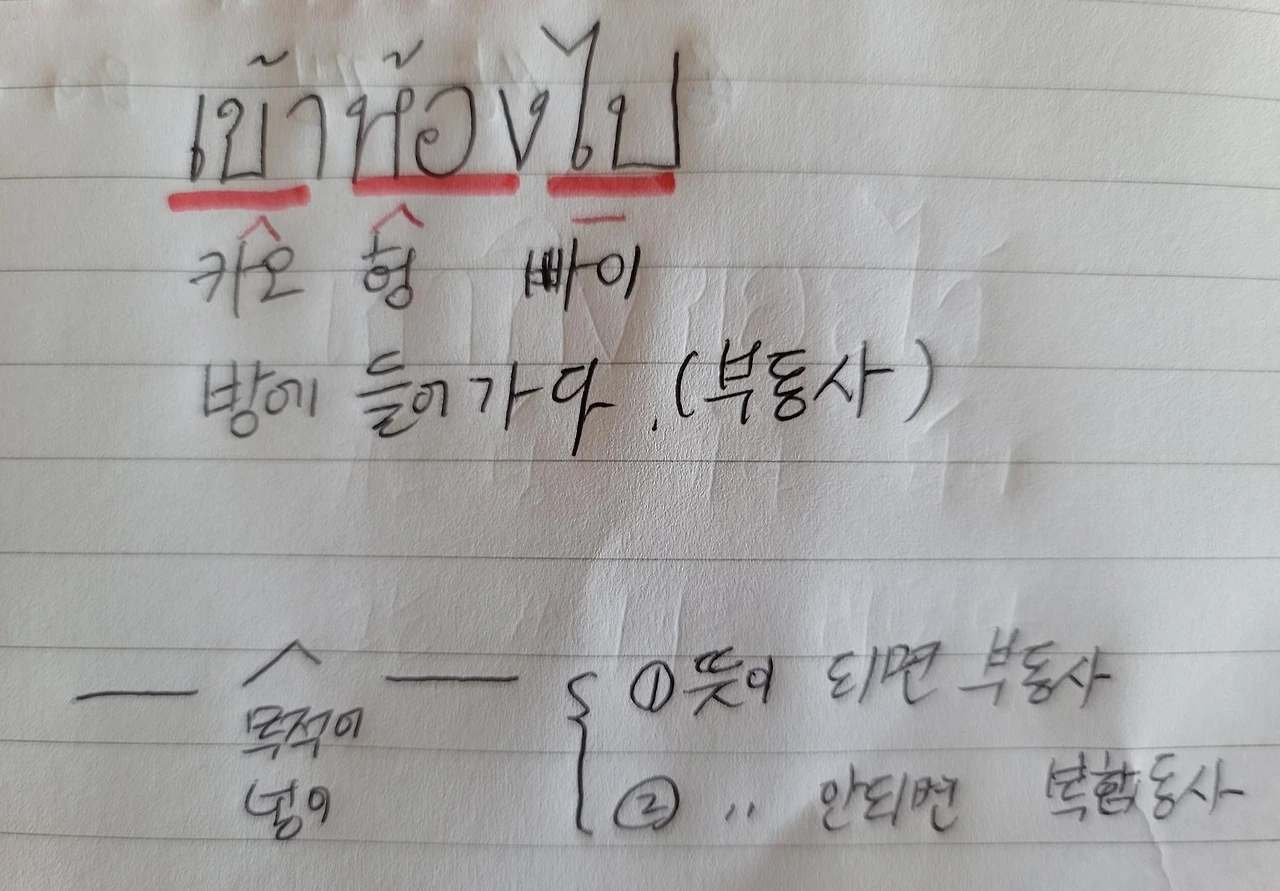 เข้าห้องไป
카오 헝 빠이
방에 들어가다. (부동사)
목적어
넣어
① 뜻이 되면 부동사
② 〃 안되면 복합동사